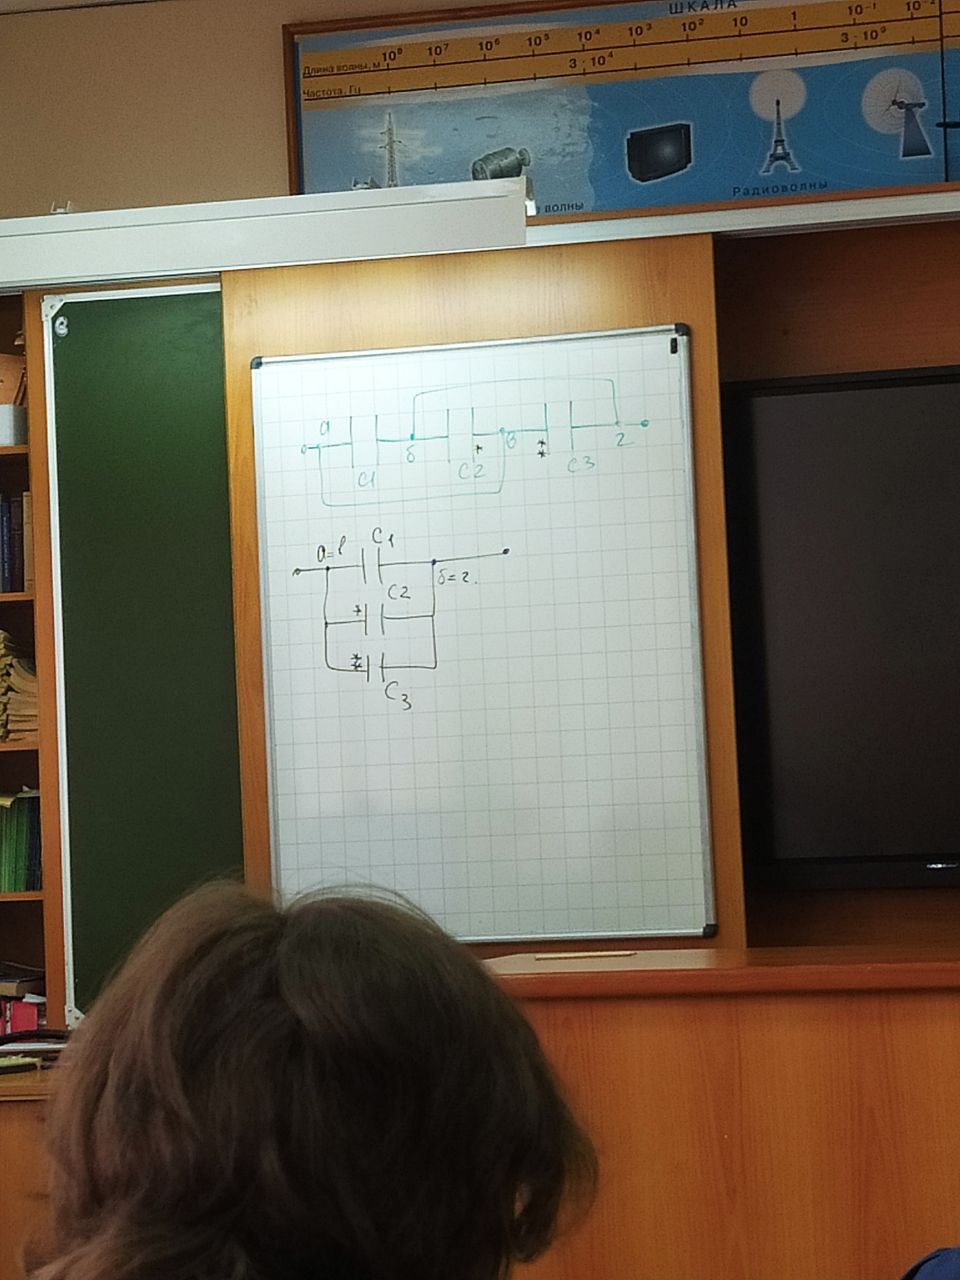 ШКАЛА
Длина волны, м 10⁸ 10⁷ 10⁶ 10⁵ 10⁴ 10³ 10² 10 1 10⁻¹ 10⁻²
Частота, Гц 3·10⁴ 3·10⁹
волны
Радиоволны
а б * в * * г
C1 C2 C3
а=в C1
б=г.
C2
*
* *
C3